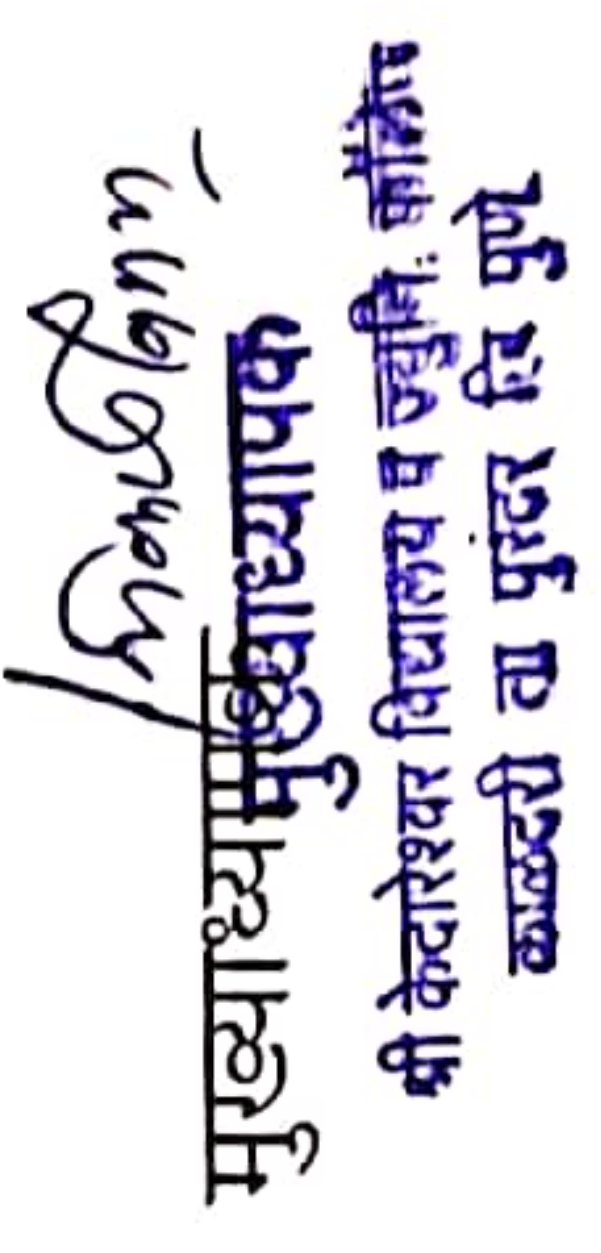 मुख्याध्यापक
मुख्याध्यापक
श्री केदारेश्वर विद्यालय व ज्युनि. कॉलेज
काळदरी ता पुरंदर जि पुणे